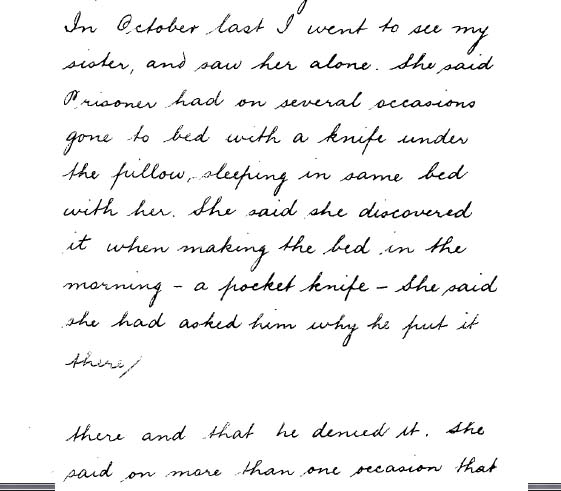 In October last I went to see my
sister, and saw her alone. She said
Prisoner had on several occasions
gone to bed with a knife under
the pillow, sleeping in same bed
with her. She said she discovered
it when making the bed in the
morning - a pocket knife - She said
she had asked him why he put it
there/
there and that he denied it. She
said on more than one occasion that